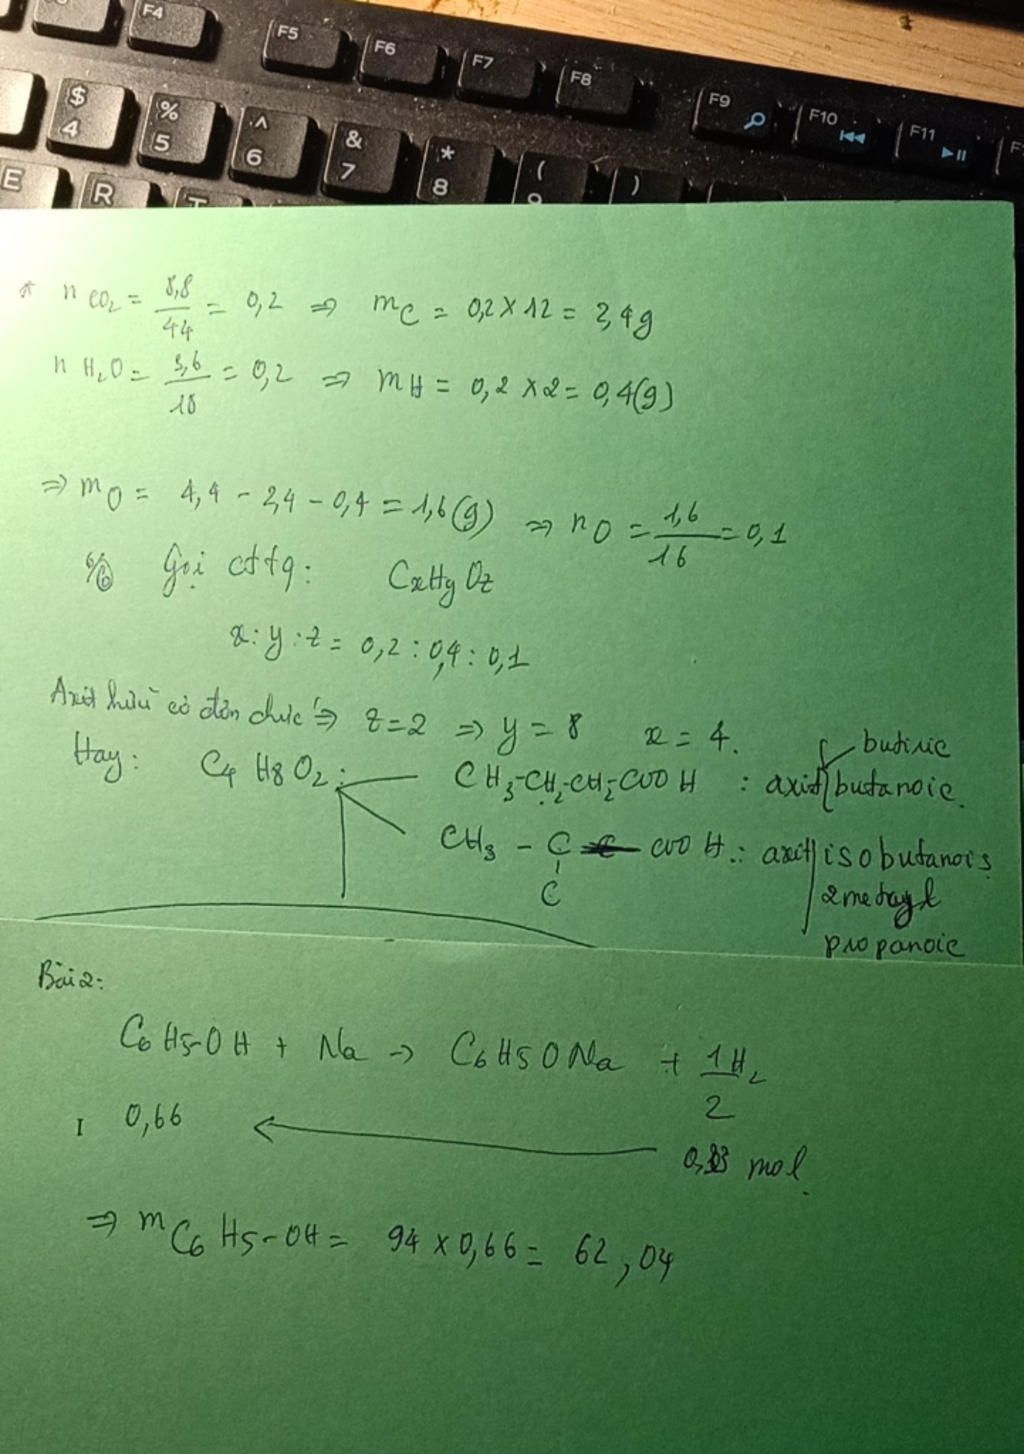 F4 F5 F6 F7 F8 F9 F10 F11
$ 4 % 5 ^ 6 & 7 * 8 ( 9 )
E R T
* n CO₂ = 8,8/44 = 0,2 => mC = 0,2 x 12 = 2,4g
n H₂O = 3,6/18 = 0,2 => mH = 0,2 x 2 = 0,4(g)
=> mO = 4,4 - 2,4 - 0,4 = 1,6(g) => nO = 1,6/16 = 0,1
Gọi cttq: CxHyOz
x:y:z = 0,2 : 0,4 : 0,1
Axit hữu cơ đơn chức => z=2 => y = 8 x = 4.
butiric
Hay: C4H8O2: CH₃-CH₂-CH₂-COOH : axit butanoic.
CH₃ - C - COOH : axit isobutanois
C 2metayl
propanoic
Bài 2:
C6H5-OH + Na -> C6H5ONa + 1/2 H₂
0,66 <- 0,33 mol.
=> m C6H5-OH = 94 x 0,66 = 62,04